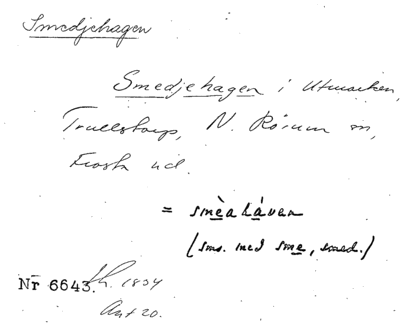 Smedjehagen
Smedjehagen i Utmarken,
Trullstorp, N. Rörum sn,
Frosta hd.
= smèa háven
(sms. med sme, smed.)
Nr 6643. 1834
Ant 20.